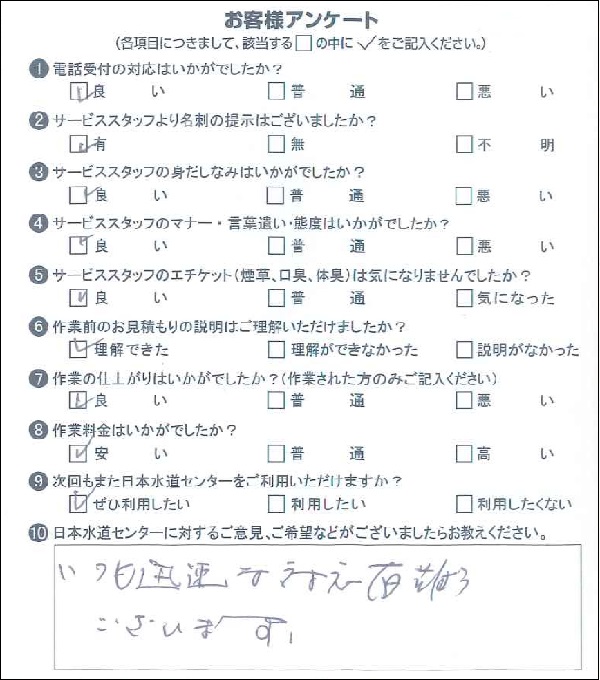 お客様アンケート
(各項目につきまして、該当する□の中に✓をご記入ください。)
1 電話受付の対応はいかがでしたか?
良い 普通 悪い
2 サービススタッフより名刺の提示はございましたか?
有 無 不明
3 サービススタッフの身だしなみはいかがでしたか?
良い 普通 悪い
4 サービススタッフのマナー・言葉遣い・態度はいかがでしたか?
良い 普通 悪い
5 サービススタッフのエチケット(煙草、口臭、体臭)は気になりませんでしたか?
良い 普通 気になった
6 作業前のお見積もりの説明はご理解いただけましたか?
理解できた 理解ができなかった 説明がなかった
7 作業の仕上がりはいかがでしたか?(作業された方のみご記入ください)
良い 普通 悪い
8 作業料金はいかがでしたか?
安い 普通 高い
9 次回もまた日本水道センターをご利用いただけますか?
ぜひ利用したい 利用したい 利用したくない
10 日本水道センターに対するご意見、ご希望などがございましたらお教えください。
いつも迅速な
ございます。